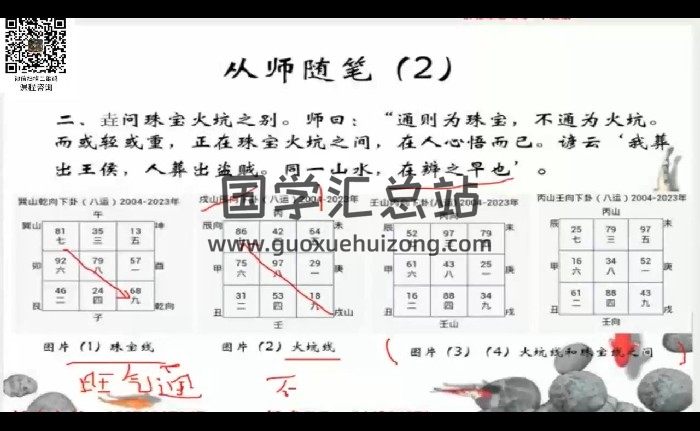 课程咨询
从师随笔（2）
二、垚问珠宝火坑之别。师曰：“通则为珠宝，不通为火坑。
而或轻或重，正在珠宝火坑之间，在人心悟而已。谚云‘我葬
出王侯，人葬出盗贼。同一山水，在辨之早也’。
国学汇总站
www.guoxuehuizong.com
巽山乾向下卦（八运）2004-2023年
午
巽山 81 35 13 坤
七 三 五
卯 92 79 57 酉
六 八 一
艮 46 24 68 乾向
二 四 九
子
图片（1）珠宝线
旺气通
戌山辰向下卦（八运）2004-2023年
辰向 86 42 64
甲 75 97 29 庚
六 八 一
丑 31 53 18 戌山
二 四 九
壬
图片（2）火坑线
不
壬山丙向下卦(八运)2004-2023年
辰 52 97 79
七 三 五
甲 61 43 25 庚
六 八 一
丑 16 88 34 戌
二 四 九
壬山
丙山壬向下卦(八运)2004-2023年
丙山
辰 25 79 97 未
七 三 五
甲 16 34 52 庚
六 八 一
丑 61 88 43 戌
二 四 九
壬向
图片（3）（4）火坑线和珠宝线之间